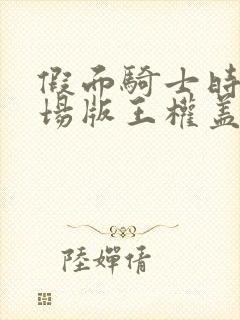 假面騎士時
場版王權蓋
陸嬋倩